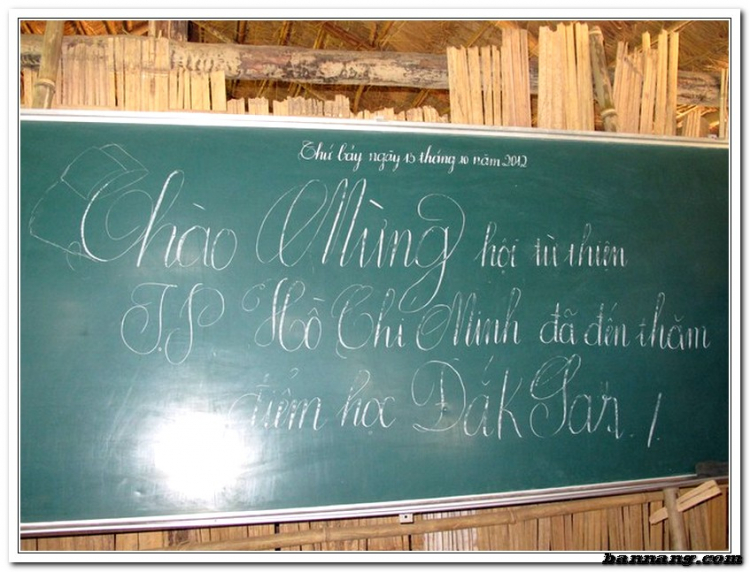 bannang.com
Thứ bảy ngày 13 tháng 10 năm 2012
Chào Mừng hội từ thiện
T.P Hồ Chí Minh đã đến thăm
điểm học Đắk Sar./.
bannang.com